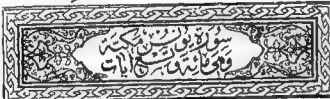 سورة يونس مكية
وهي مائة وتسع آيات